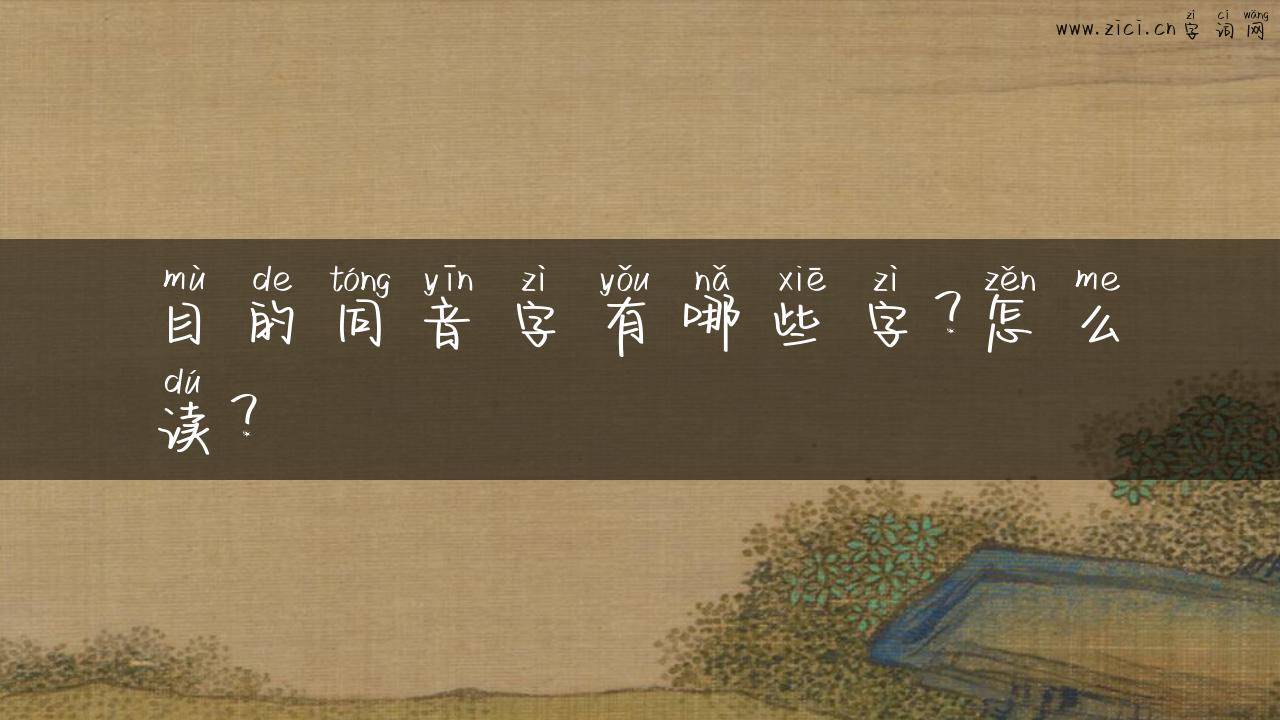 zì cí wǎng
www.zici.cn字词网
mù de tóng yīn zì yǒu nǎ xiē zì zěn me
目的同音字有哪些字?怎么
dú
读?